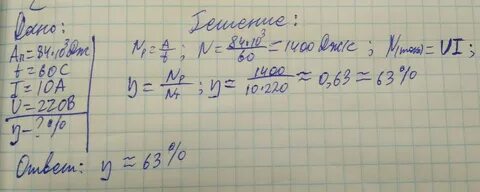 Дано:
Aп = 84·10³ Дж
t = 60 С
I = 10 А
U = 220 В
η - ? %
Решение:
Nр = A/t ; N = 84·10³/60 = 1400 Дж/с ; N(полн) = UI ;
η = Nр/Nт ; η = 1400/10·220 ≈ 0,63 ≈ 63%
Ответ: η ≈ 63%